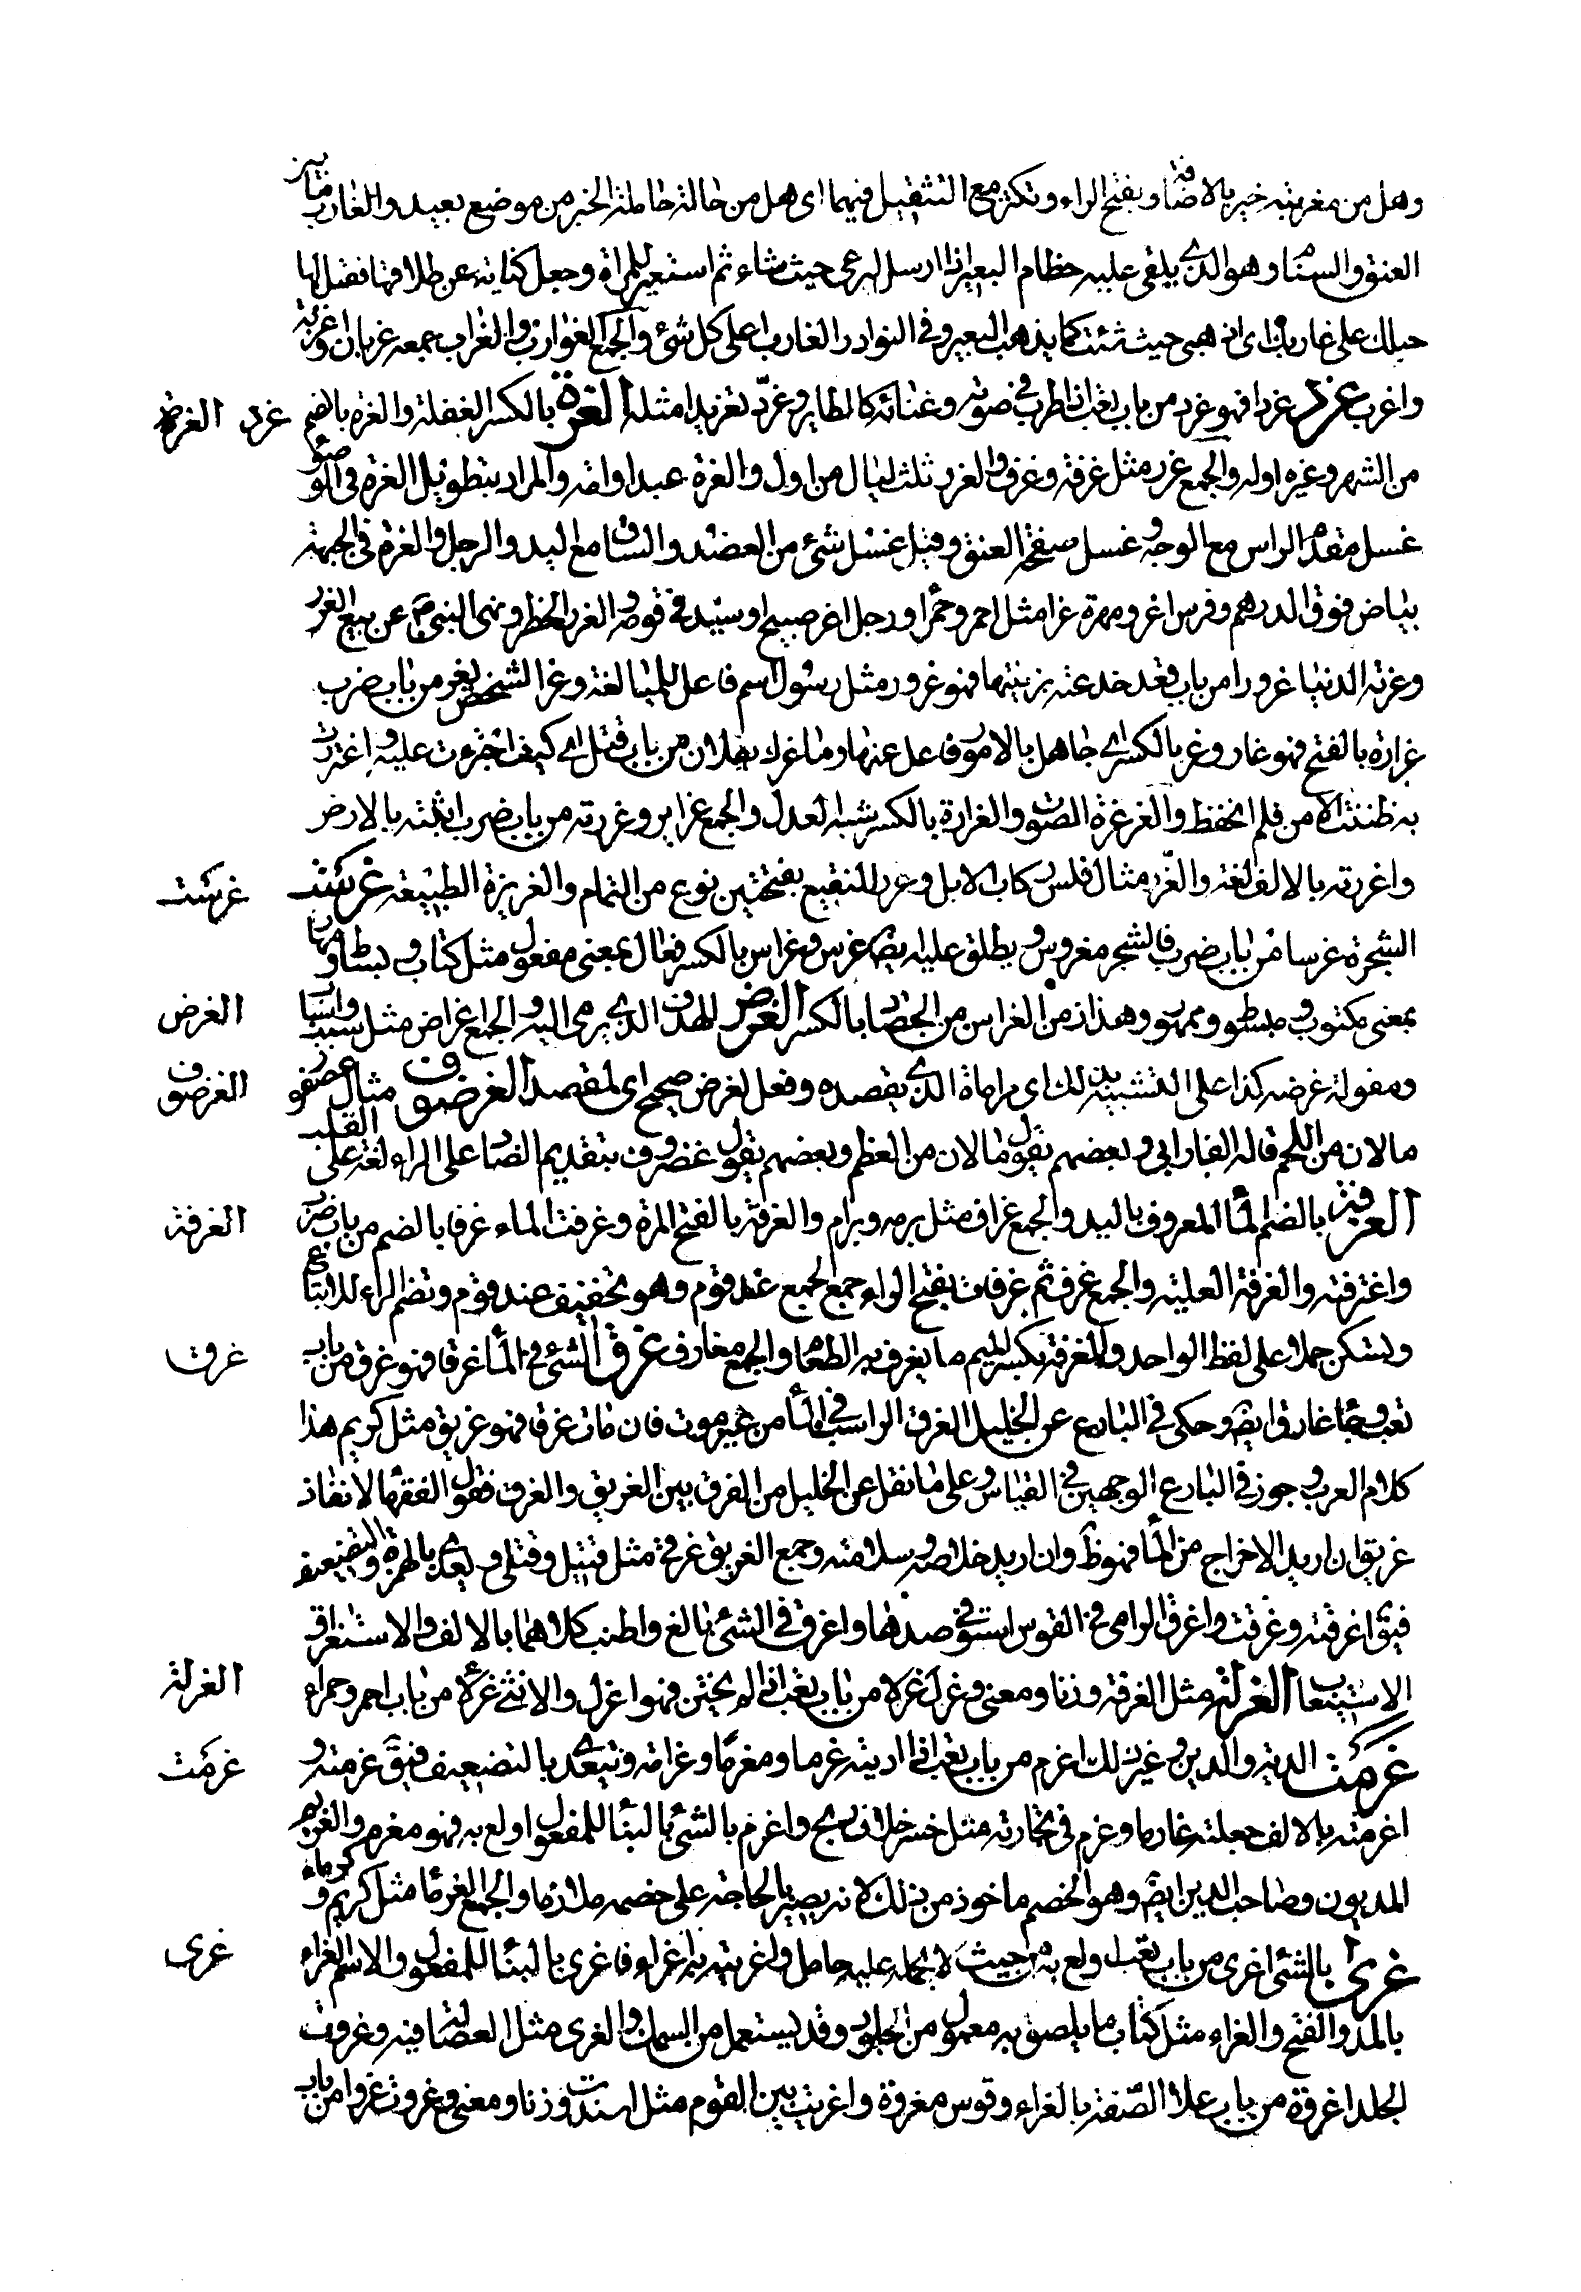 وهل من مغربة خبر بالاضافة وبفتح الراء وتكسر مع التثقيل فيهما اى هل من حالة حاملة الخبر من موضع بعيد والغارب ما بين
العنق والسنام وهو الذى يلقى عليه خطام البعير اذا ارسل ليرعى حيث شاء ثم استعير للمراة وجعل كناية عن طلاقها فقيل لها
حبلك على غاربك اى اذهبى حيث شئت كما يذهب البعير وفى النوادر الغارب اعلى كل شئ والجمع الغوارب والغراب جمعه غربان واغربة
واغرب غرد غردا فهو غرد من باب تعب اذا طرب فى صوته وغنائه كالطاير وغرد تغريدا مثله الغرة بالكسر الغفلة والغرة بالضم
غرد الغرة
من الشهر وغيره اوله والجمع غرر مثل غرفة وغرف والغرر ثلث ليال من اول والغرة عبد او امة والمراد بتطويل الغرة فى الوضوء
غسل مقدم الراس مع الوجه وغسل صفحة العنق وقيل غسل شئ من العضد والساق مع اليد والرجل والغرة فى الجبهة
بياض فوق الدرهم وفرس اغر ومهرة غرا مثل احمر وحمرا ورجل اغر صبيح او سيد فى قومه والغرر الخطر ونهى النبى ص عن بيع الغرر
وغرته الدنيا غرورا من باب قعد خدعته بزينتها فهو غرور مثل رسول اسم فاعل للمبالغة وغر الشخص يغر من باب ضرب
غرارة بالفتح فهو غار وغر بالكسر اى جاهل بالامور غافل عنها وما غرك بفلان من باب قتل اى كيف اجترءت عليه واغتررت
به ظننت الامن فلم اتحفظ والغرغرة الصوت والغرارة بالكسر شبه العدل والجمع غراير وغررته من باب ضرب اثبته بالارض
واغررته بالالف لغة والغرر مثال فلس ركاب الابل وغرر النقيع بفتحتين نوع من الثمام والغريزة الطبيعة غرست
غرست
الشجرة غرسا من باب ضرب فالشجر مغروس ويطلق عليه ايضا غرس وغراس بالكسر فعال بمعنى مفعول مثل كتاب وبساط ومهاد
بمعنى مكتوب ومبسوط وممهود وهذا زمن الغراس من الحصاد بالكسر الغرض الهدف الذى يرمى اليه والجمع اغراض مثل سبب واسباب
الغرض
وتقول غرضه كذا على التشبيه بذلك اى مرماه الذى يقصده وفعل لغرض صحيح اى لمقصد الغرضوف مثال عصفور
الغرضوف
ما لان من اللحم قاله الفارابى وبعضهم يقول ما لان من العظم وبعضهم يقول غضروف بتقديم الضاد على الراء لغة على القلب
الغرفة بالضم الماء المغروف باليد والجمع غراف مثل برمة وبرام والغرفة بالفتح المرة وغرفت الماء غرفا بالضم من باب ضرب
الغرفة
واغترفته والغرفة العلية والجمع غرف ثم غرفات بفتح الراء جمع الجمع عند قوم وهو تخفيف عند قوم وتضم الراء للاتباع
وتسكن حملا على لفظ الواحد والمغرفة بكسر الميم ما يغرف به الطعام والجمع مغارف غرق الشئ فى الماء غرقا فهو غرق من باب
غرق
تعب وجا غارق ايض وحكى فى البارع عن الخليل الغرق الراسب فى الماء من غير موت فان مات غرقا فهو غريق مثل كريم هذا
كلام العرب وجوز فى البارع الوجهين فى القياس وعلى ما نقل عن الخليل من الفرق بين الغريق والغرق فقول الفقها لانقاذ
غريق ان اريد الاخراج من الماء فهو ظ وان اريد خلاصه وسلامته وجمع الغريق غرقى مثل قتيل وقتلى ويعدى بالهمزة والتضعيف
فيق اغرقته وغرقت واغرق الرامى فى القوس استوفى مدها واغرق فى الشئ بالغ واطنب كلاهما بالالف والاستغراق
الاستيعاب الغرلة مثل الغرفة وزنا ومعنى وغرل غرلا من باب تعب اذا لم يختن فهو اغرل والانثى غرلاء من باب احمر وحمراء
الغرلة
غرمت الدية والدين وغير ذلك اغرم من باب تعب اذا اديته غرما ومغرما وغرامة وتتعدى بالتضعيف فيق غرمته و
غرمت
اغرمته بالالف جعلته غارما وغرم فى تجارته مثل خسر خلاف ربح واغرم بالشئ بالبناء للمفعول اولع به فهو مغرم والغريم
المديون وصاحب الدين ايض وهو الخصم ماخوذ من ذلك لانه يصير بالحاحه على خصمه ملازما والجمع الغرما مثل كريم وكرماء
غرى بالشئ اغرى من باب تعب اولع به من حيث لا يحمله عليه حامل واغريته به اغراء فاغرى بالبناء للمفعول والاسم الغراء
غرى
بالمد والفتح والغراء مثل كتاب ما يلصق به معمول من الجلود وقد يستعمل من السمك والغرى مثل العصا لغة فيه وغروت
الجلد اغروه من باب علا الصقته بالغراء وقوس مغروة واغريت بين القوم مثل افسدت وزنا ومعنى وغروت غروا من باب